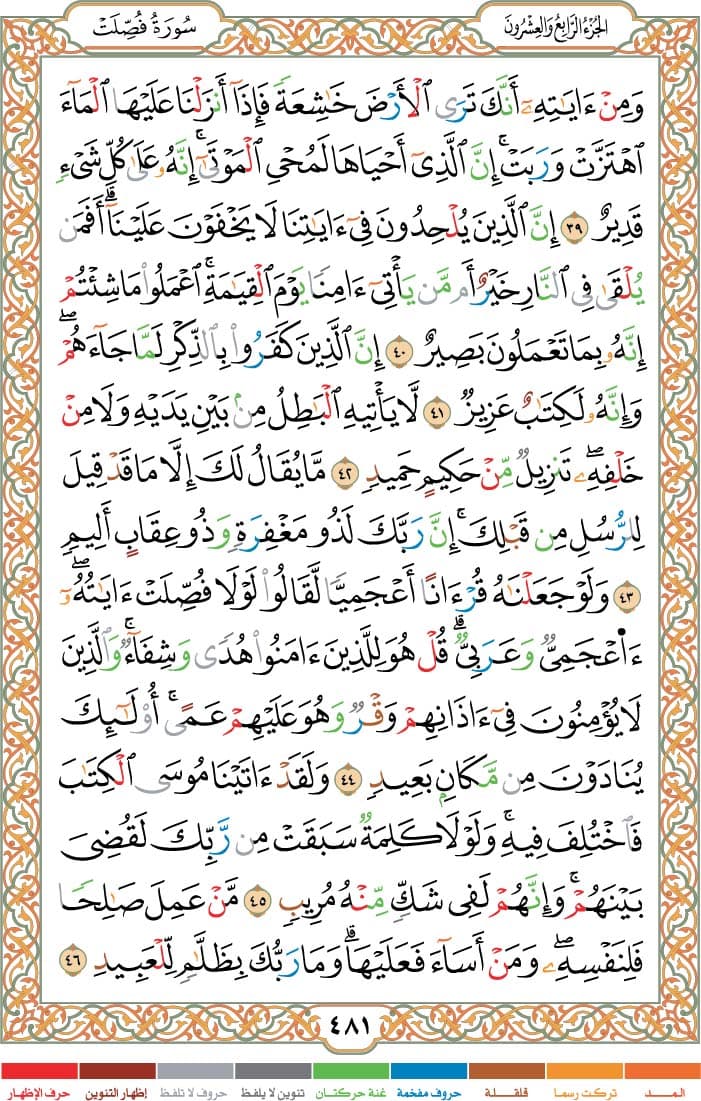 الجُزْءُ الرَّابِعُ وَالعِشْرُونَ
سُورَةُ فُصِّلَتْ
وَمِنْ ءَايَٰتِهِۦٓ أَنَّكَ تَرَى ٱلْأَرْضَ خَٰشِعَةً فَإِذَآ أَنزَلْنَا عَلَيْهَا ٱلْمَآءَ
ٱهْتَزَّتْ وَرَبَتْ ۚ إِنَّ ٱلَّذِىٓ أَحْيَاهَا لَمُحْىِ ٱلْمَوْتَىٰٓ ۚ إِنَّهُۥ عَلَىٰ كُلِّ شَىْءٍ
قَدِيرٌ ٣٩ إِنَّ ٱلَّذِينَ يُلْحِدُونَ فِىٓ ءَايَٰتِنَا لَا يَخْفَوْنَ عَلَيْنَآ ۗ أَفَمَن
يُلْقَىٰ فِى ٱلنَّارِ خَيْرٌ أَم مَّن يَأْتِىٓ ءَامِنًا يَوْمَ ٱلْقِيَٰمَةِ ۚ ٱعْمَلُوا۟ مَا شِئْتُمْ ۖ
إِنَّهُۥ بِمَا تَعْمَلُونَ بَصِيرٌ ٤٠ إِنَّ ٱلَّذِينَ كَفَرُوا۟ بِٱلذِّكْرِ لَمَّا جَآءَهُمْ ۖ
وَإِنَّهُۥ لَكِتَٰبٌ عَزِيزٌ ٤١ لَّا يَأْتِيهِ ٱلْبَٰطِلُ مِنۢ بَيْنِ يَدَيْهِ وَلَا مِنْ
خَلْفِهِۦ ۖ تَنزِيلٌ مِّنْ حَكِيمٍ حَمِيدٍ ٤٢ مَّا يُقَالُ لَكَ إِلَّا مَا قَدْ قِيلَ
لِلرُّسُلِ مِن قَبْلِكَ ۚ إِنَّ رَبَّكَ لَذُو مَغْفِرَةٍ وَذُو عِقَابٍ أَلِيمٍ
٤٣ وَلَوْ جَعَلْنَٰهُ قُرْءَانًا أَعْجَمِيًّا لَّقَالُوا۟ لَوْلَا فُصِّلَتْ ءَايَٰتُهُۥٓ ۖ
ءَا۬عْجَمِىٌّ وَعَرَبِىٌّ ۗ قُلْ هُوَ لِلَّذِينَ ءَامَنُوا۟ هُدًى وَشِفَآءٌ ۖ وَٱلَّذِينَ
لَا يُؤْمِنُونَ فِىٓ ءَاذَانِهِمْ وَقْرٌ وَهُوَ عَلَيْهِمْ عَمًى ۚ أُو۟لَٰٓئِكَ
يُنَادَوْنَ مِن مَّكَانٍۭ بَعِيدٍ ٤٤ وَلَقَدْ ءَاتَيْنَا مُوسَى ٱلْكِتَٰبَ
فَٱخْتُلِفَ فِيهِ ۚ وَلَوْلَا كَلِمَةٌ سَبَقَتْ مِن رَّبِّكَ لَقُضِىَ
بَيْنَهُمْ ۚ وَإِنَّهُمْ لَفِى شَكٍّ مِّنْهُ مُرِيبٍ ٤٥ مَّنْ عَمِلَ صَٰلِحًا
فَلِنَفْسِهِۦ ۖ وَمَنْ أَسَآءَ فَعَلَيْهَا ۗ وَمَا رَبُّكَ بِظَلَّٰمٍ لِّلْعَبِيدِ ٤٦
٤٨١
المـــد تركت رسما قلقـلـة حروف مفخمة غنة حركتـان تنوين لا يلفظ حروف لا تلفظ إظهار التنوين حرف الإظهار